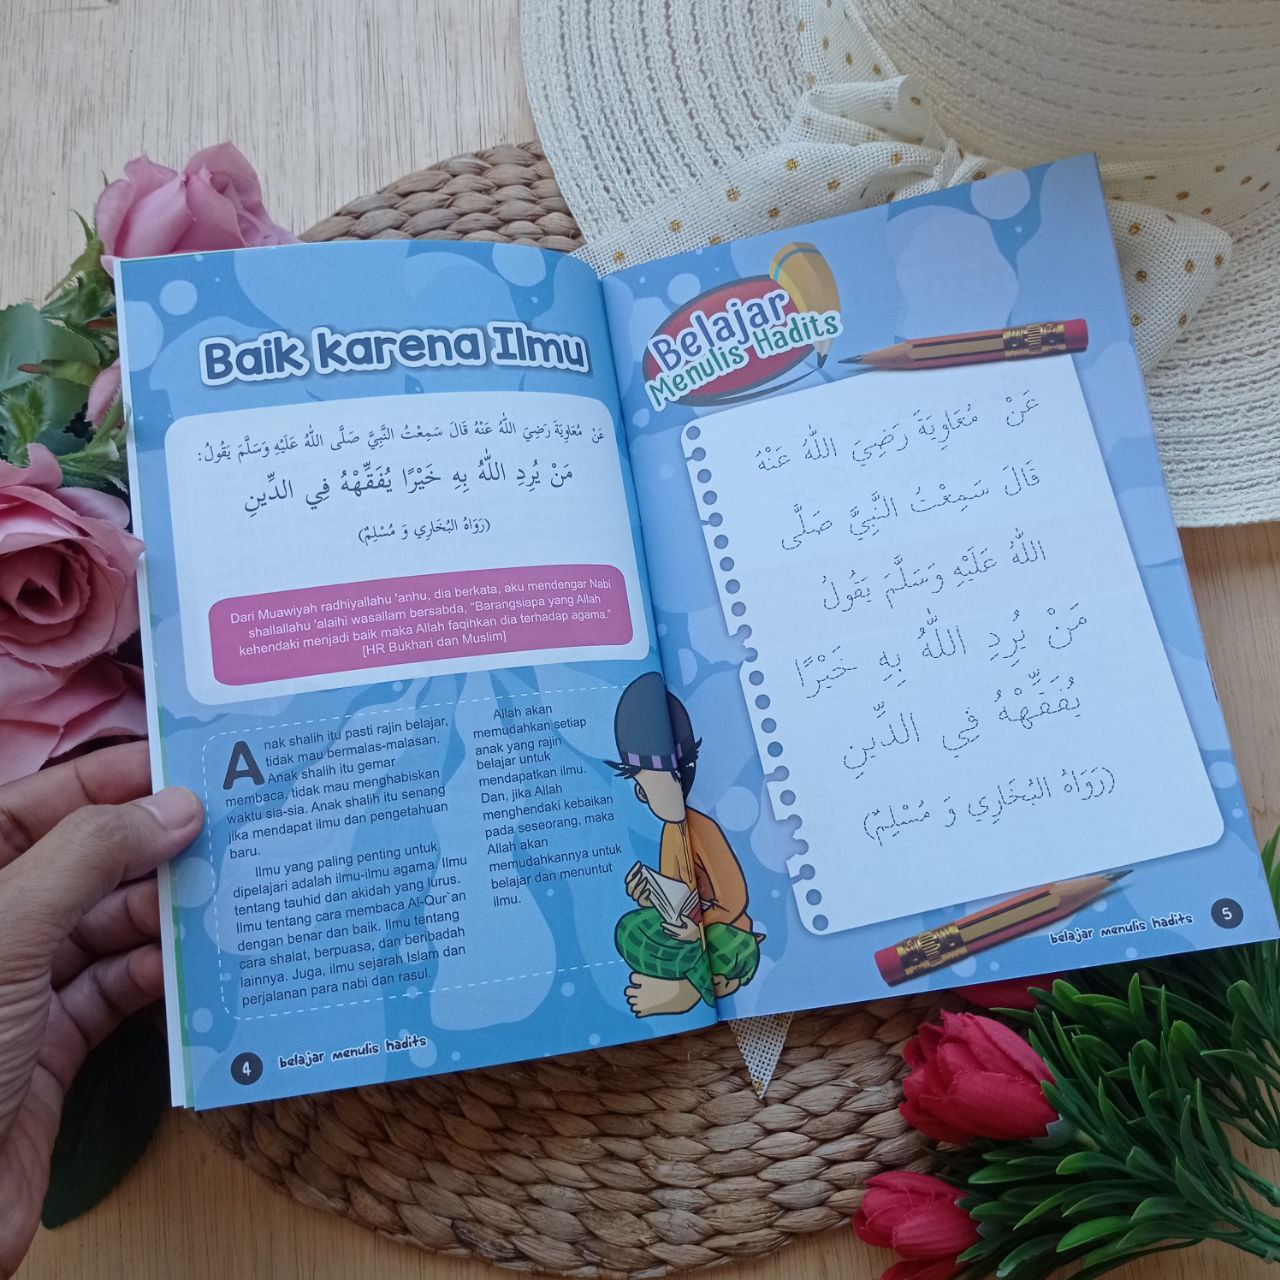 Baik karena Ilmu
عَنْ مُعَاوِيَةَ رَضِيَ اللهُ عَنْهُ قَالَ سَمِعْتُ النَّبِيَّ صَلَّى اللهُ عَلَيْهِ وَسَلَّمَ يَقُولُ:
مَنْ يُرِدِ اللهُ بِهِ خَيْرًا يُفَقِّهْهُ فِي الدِّينِ
(رَوَاهُ البُخَارِي وَ مُسْلِمٌ)
Dari Muawiyah radhiyallahu 'anhu, dia berkata, aku mendengar Nabi
shallallahu 'alaihi wasallam bersabda, “Barangsiapa yang Allah
kehendaki menjadi baik maka Allah faqihkan dia terhadap agama.”
[HR Bukhari dan Muslim]
Anak shalih itu pasti rajin belajar,
tidak mau bermalas-malasan.
Anak shalih itu gemar
membaca, tidak mau menghabiskan
waktu sia-sia. Anak shalih itu senang
jika mendapat ilmu dan pengetahuan
baru.
Ilmu yang paling penting untuk
dipelajari adalah ilmu-ilmu agama. Ilmu
tentang tauhid dan akidah yang lurus.
Ilmu tentang cara membaca Al-Qur`an
dengan benar dan baik. Ilmu tentang
cara shalat, berpuasa, dan beribadah
lainnya. Juga, ilmu sejarah Islam dan
perjalanan para nabi dan rasul.
Allah akan
memudahkan setiap
anak yang rajin
belajar untuk
mendapatkan ilmu.
Dan, jika Allah
menghendaki kebaikan
pada seseorang, maka
Allah akan
memudahkannya untuk
belajar dan menuntut
ilmu.
4 belajar menulis hadits
Belajar
Menulis Hadits
عَنْ مُعَاوِيَةَ رَضِيَ اللهُ عَنْهُ
قَالَ سَمِعْتُ النَّبِيَّ صَلَّى
اللهُ عَلَيْهِ وَسَلَّمَ يَقُولُ
مَنْ يُرِدِ اللهُ بِهِ خَيْرًا
يُفَقِّهْهُ فِي الدِّينِ
(رَوَاهُ البُخَارِي وَ مُسْلِمٌ)
belajar menulis hadits 5